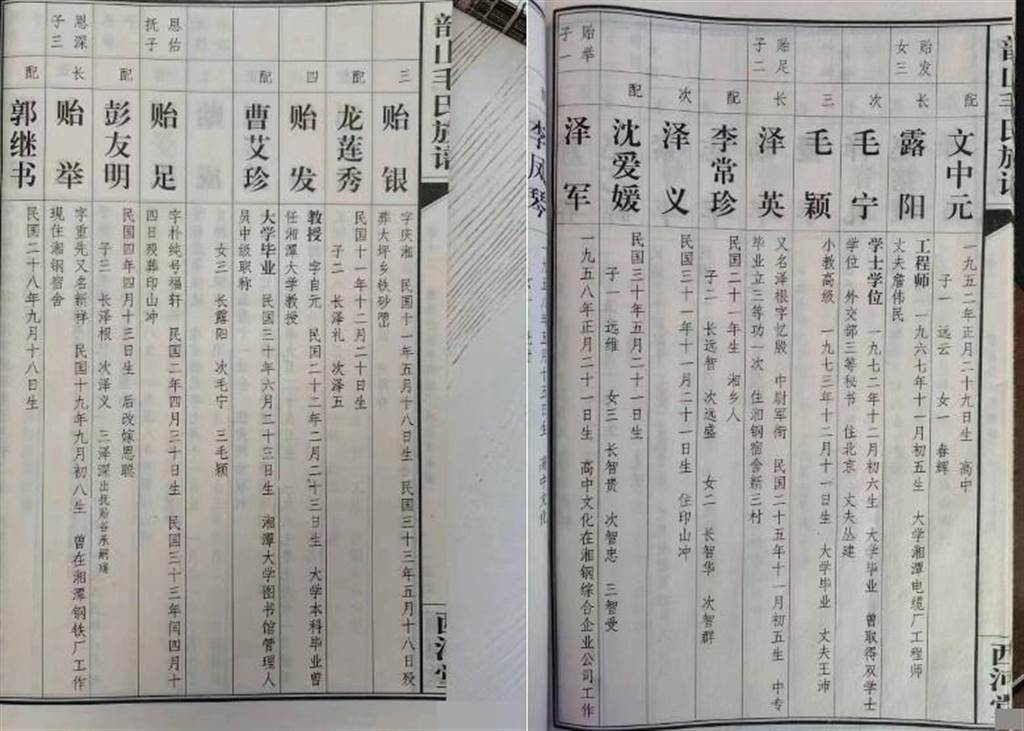 韶山毛氏族谱
西河堂
三
贻银
字庆湘 民国十一年五月十八日生 民国三十三年五月十八日殁
葬大坪乡铁砂塘
配
龙莲秀
民国十一年十二月二十日生
子二 长泽礼 次泽五
四
贻发
教授 字自元 民国二十二年二月二十三日生 大学本科毕业曾
任湘潭大学教授
配
曹艾珍
大学毕业 民国三十年六月二十三日生 湘潭大学图书馆管理人
员中级职称
女三 长露阳 次毛宁 三毛颖
恩佑
抚子
贻足
字朴纯号福轩 民国二年四月三十日生 民国三十三年闰四月十
四日殁葬印山冲
配
彭友明
民国四年四月十三日生 后改嫁恩聪
子三 长泽根 次泽义 三泽深出抚贻谷承嗣
恩深
子三
长
贻举
字重先又名新祥 民国十九年九月初八生 曾在湘潭钢铁厂工作
现住湘钢宿舍
配
郭继书
民国二十八年九月十八日生
韶山毛氏族谱
西河堂
配
文中元
一九五二年正月二十九日生 高中
子一 远云 女一 春辉
贻发
女三
长
露阳
工程师 一九六七年十一月初五生 大学湘潭电缆厂工程师
丈夫詹伟民
次
毛宁
学士学位 一九七二年十二月初六生 大学毕业 曾取得双学士
学位 外交部三等秘书 住北京 丈夫丛建
三
毛颖
小教高级 一九七三年十二月十一日生 大学毕业 丈夫王沛
贻足
子二
长
泽英
又名泽根字忆殷 中尉军衔 民国二十五年十一月初五生 中专
毕业立三等功一次 住湘钢宿舍新三村
配
李常珍
民国二十一年生 湘乡人
子二 长远智 次远盛 女二 长智华 次智群
次
泽义
民国三十一年十一月二十一日生 住印山冲
配
沈爱媛
民国三十年五月二十一日生
子一 远维 女三 长智贵 次智忠 三智爱
贻举
子一
泽军
一九五八年正月二十一日生 高中文化在湘钢综合企业公司工作
李凤琴